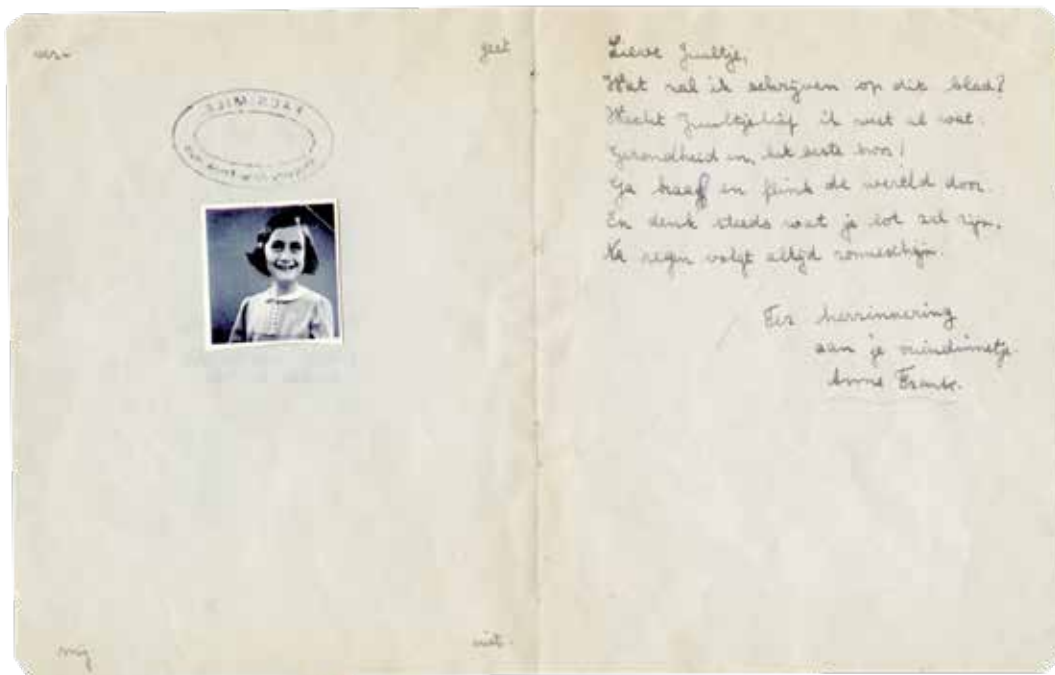 ver- geet
FACSIMILE
mij niet.
Lieve Juultje,
Wat zal ik schrijven op dit blad?
Wacht Juultjelief ik weet al wat:
Gezondheid en, het beste hoor!
Ga braaf en flink de wereld door.
En denk steeds wat je lot zal zijn,
Na regen volgt altijd zonneschijn.
Ter herrinnering
aan je vriendinnetje.
Anne Frank.